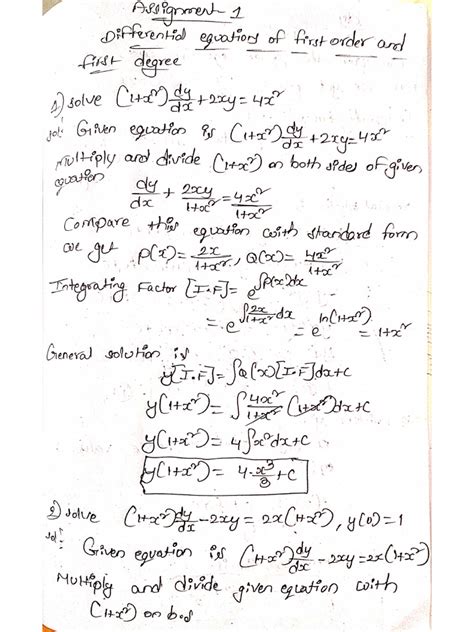 Assignment 1
Differential equations of first order and
first degree
1) solve (1+x²) dy/dx + 2xy = 4x²
sol: Given equation is (1+x²) dy/dx + 2xy = 4x²
Multiply and divide (1+x²) on both sides of given
equation
dy/dx + 2xy/1+x² = 4x²/1+x²
Compare this equation with standard form
we get P(x) = 2x/1+x², Q(x) = 4x²/1+x²
Integrating Factor [I.F] = e^∫p(x)dx
= e^∫2x/1+x² dx = e^ln(1+x²) = 1+x²
General solution is
y[I.F] = ∫Q(x)[I.F]dx+c
y(1+x²) = ∫4x²/1+x² (1+x²)dx+c
y(1+x²) = 4∫x²dx+c
y(1+x²) = 4·x³/3 + c
2) solve (1+x²) dy/dx - 2xy = 2x(1+x²), y(0)=1
sol: Given equation is (1+x²) dy/dx - 2xy = 2x(1+x²)
Multiply and divide given equation with
(1+x²) on b.s